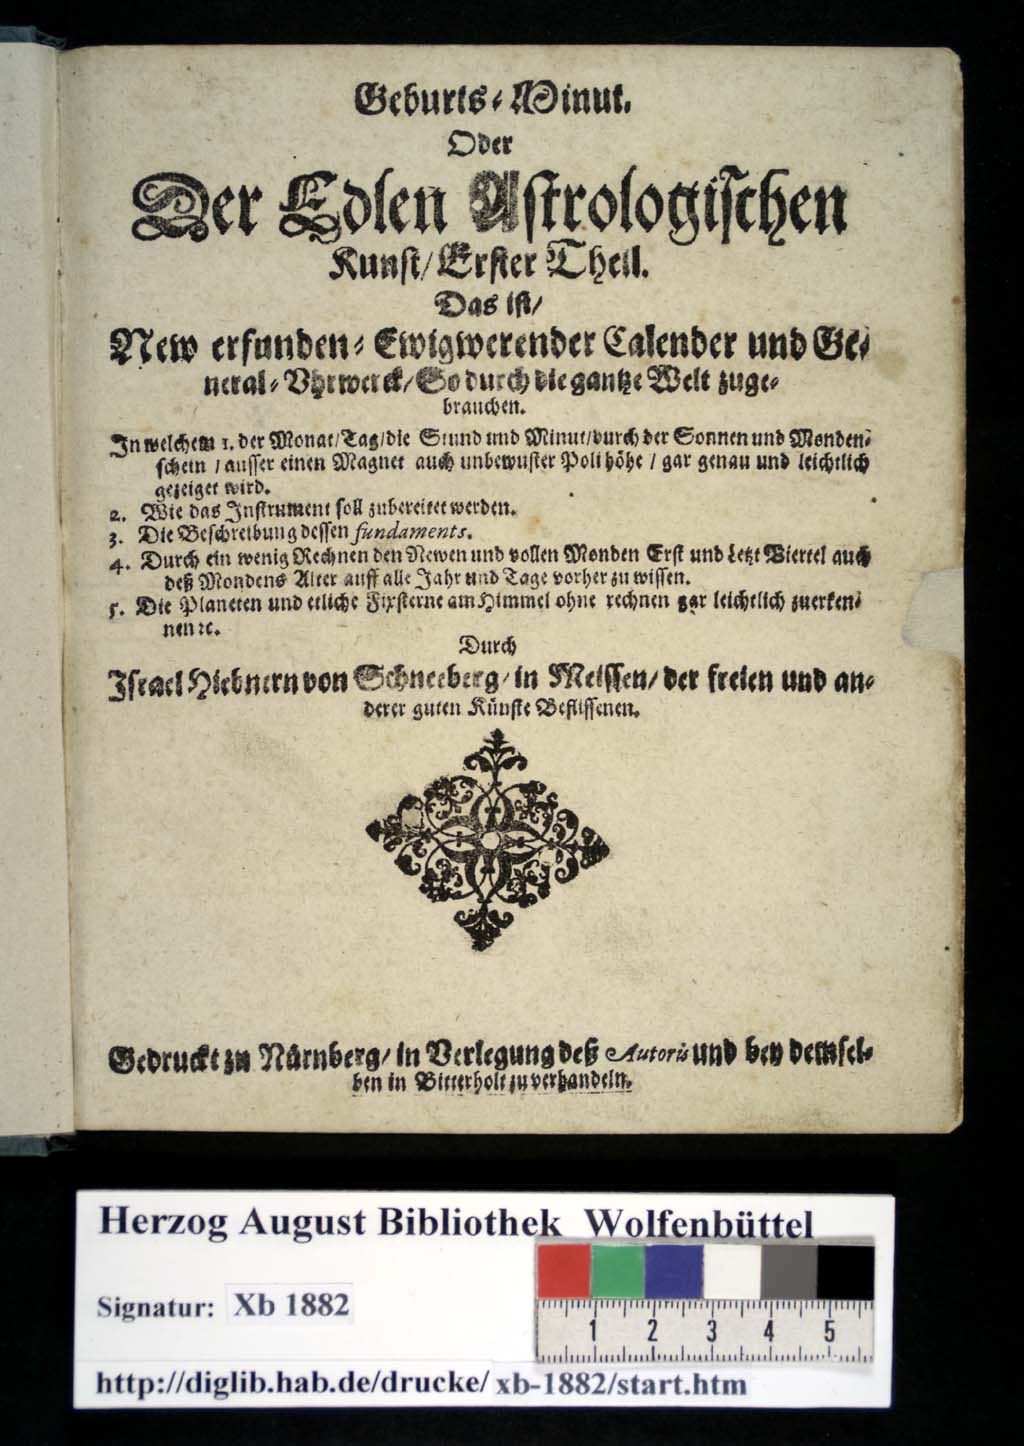 Geburts-Minut.
Oder
Der Edlen Astrologischen
Kunst/ Erster Theil.
Das ist/
New erfunden-Ewigwerender Calender und Ge-
neral-Uhrwerck/ So durch die gantze Welt zuge-
brauchen.
In welchem 1. der Monat/Tag/die Stund und Minut/durch der Sonnen und Monden-
schein / ausser einen Magnet auch unbewuster Poli höhe / gar genau und leichtlich
gezeiget wird.
2. Wie das Instrument soll zubereitet werden.
3. Die Beschreibung dessen fundaments.
4. Durch ein wenig Rechnen den Newen und vollen Monden Erst und Letzt Viertel auch
deß Mondens Alter auff alle Jahr und Tage vorher zu wissen.
5. Die Planeten und etliche Fixsterne am Himmel ohne rechnen gar leichtlich zuerken-
nen ꝛc.
Durch
Israel Hiebnern von Schneeberg/ in Meissen/ der freien und an-
derer guten Künste Beflissenen.
Gedruckt zu Nürnberg/ in Verlegung deß Autoris und bey demsel-
ben in Bitterholt zu verhandeln.
Herzog August Bibliothek Wolfenbüttel
Signatur: Xb 1882
1 2 3 4 5
http://diglib.hab.de/drucke/xb-1882/start.htm